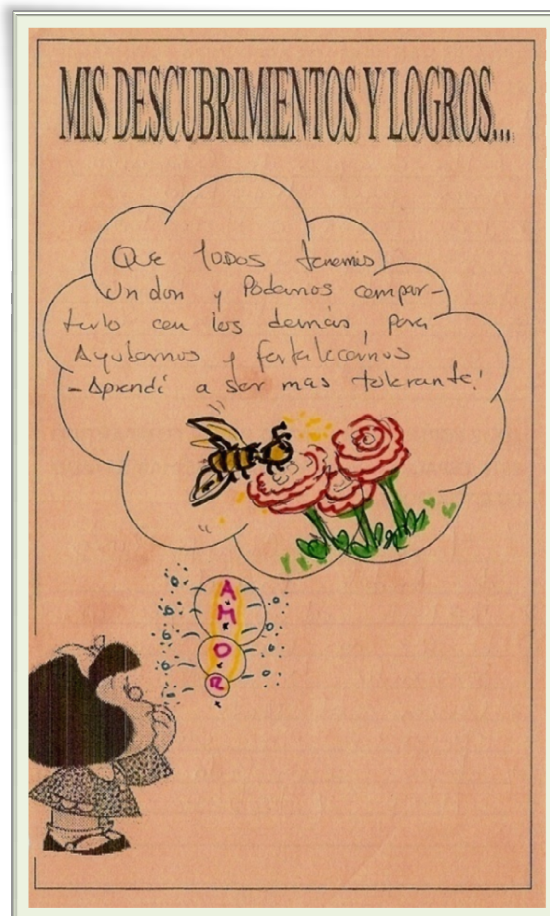 MIS DESCUBRIMIENTOS Y LOGROS...
Que TODOS tenemos
un don y Podemos compar-
tirlo con los demás, para
Ayudarnos y fortalecernos
- Aprendí a ser mas tolerante!
A
M
O
R